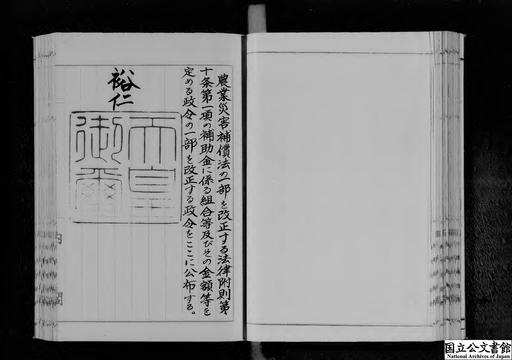 農業災害補償法の一部を改正する法律附則第
十条第一項の補助金に係る組合等及びその金額等を
定める政令の一部を改正する政令をここに公布する。
裕仁
天皇
御璽
国立公文書館
National Archives of Japan